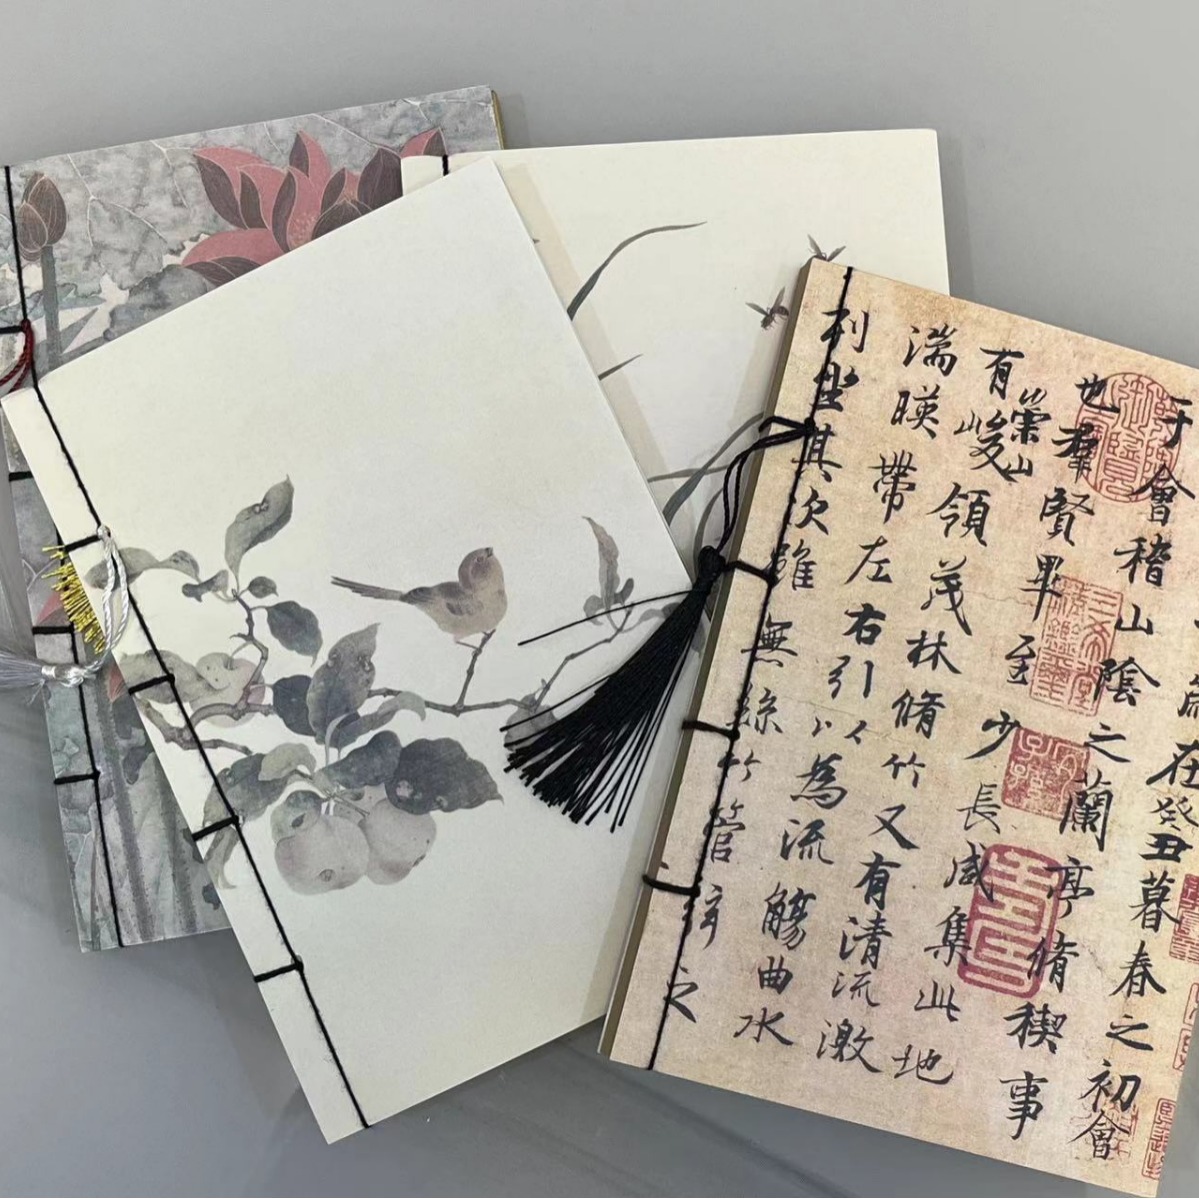 在癸丑暮春之初會
于會稽山陰之蘭亭脩稧事
也羣賢畢至少長咸集此地
有崇山峻領茂林脩竹又有清流激
湍暎帶左右引以為流觴曲水
列坐其次雖無絲竹管弦之